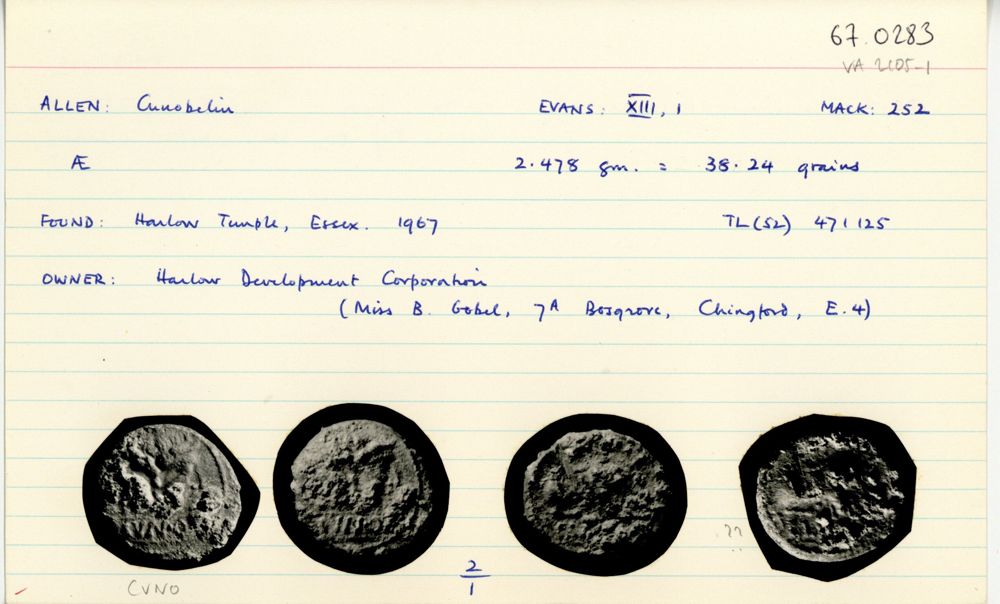 67.0283
VA 2105-1
ALLEN: Cunobelin EVANS: XIII, 1 MACK: 252
Æ 2.478 gm. = 38.24 grains
FOUND: Harlow Temple, Essex. 1967 TL(52) 471125
OWNER: Harlow Development Corporation
(Miss B. Gobel, 7A Bosgrove, Chingford, E.4)
CVNO
??
CVNO
2/1